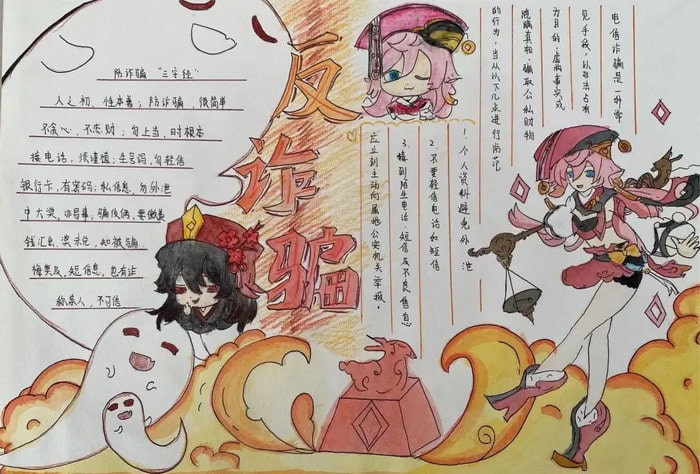 反诈骗
防诈骗 “三字经”
人之初，性本善；防诈骗，很简单
不贪心，不恋财；勿上当，时根本
接电话，须谨慎；生号码，勿轻信
银行卡，有密码；私信息，勿外泄
中大奖，边易事，骗伎俩，要做美
钱汇出，奖未兑，知被骗
悔莫及，短信息，也有诈
称亲人，不可信
电信诈骗是一种常
见手段，以非法占有
为目的，虚构事实或
隐瞒真相，骗取公私财物
的行为，当从以下几点进行防范
1. 个人资料避免外泄
2. 不要轻信电话和短信
3. 接到陌生电话短信及不良信息
应立刻主动向属地公安机关举报。